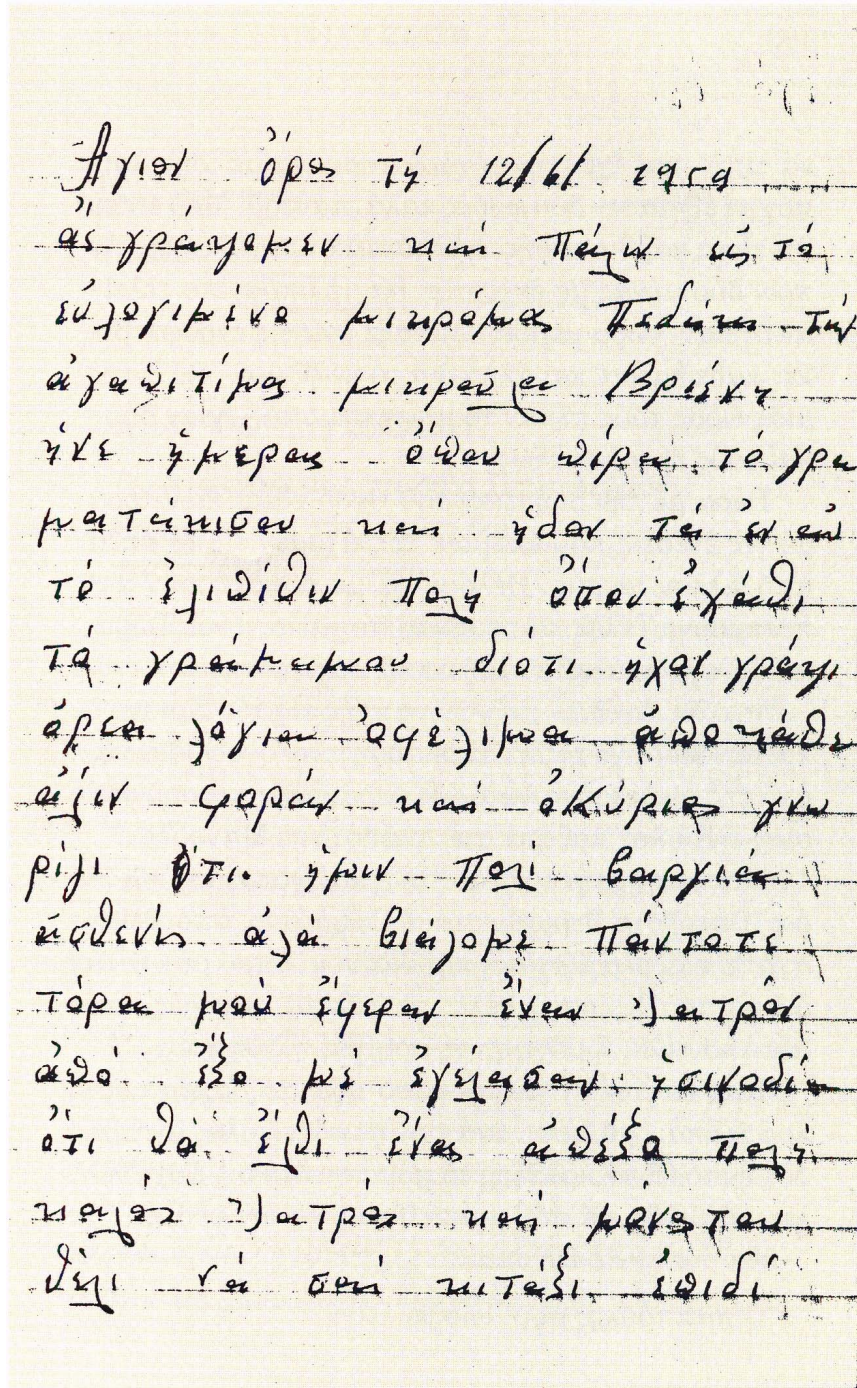 Ἅγιον ὄρος τῇ 12/6/ 1959
ἄς γράψομεν καί Πάλιν εἰς τό
εὐλογιμένο μικρόμας Πεδάκι τήν
ἀγαπιτίμας μικροῦλα Βριένη
ἡνε ἡμέρας ὅπου πίρα τό γρα
ματάκισου καί ἡδον τά ἐν αὐ
τό ἐλιπίθιν Πολή ὅπου ἐχάθι
τό γράμαμου διότι ἡχον γράψι
ὀρεα λόγια ὀφέλιμοα ἀπο κάθε
ἄλιν φοράν καί ὁ Κύριος γνω
ρίζι ὅτι ἡμουν Πολί βαργιά
ἀσθενίς ἀλά βιάζομε Πάντοτε
τόρα μοῦ ἔφεραν ἕναν ἰατρόν
ἀπό ἔξο μέ ἐγέλασαν ἡσινοδία
ὅτι θά ἔλθι ἕνας ἀπέξο πολή
καλός ἰατρός καί μόνοςτου
θέλι νά σαί κιτάξι ἐπιδί